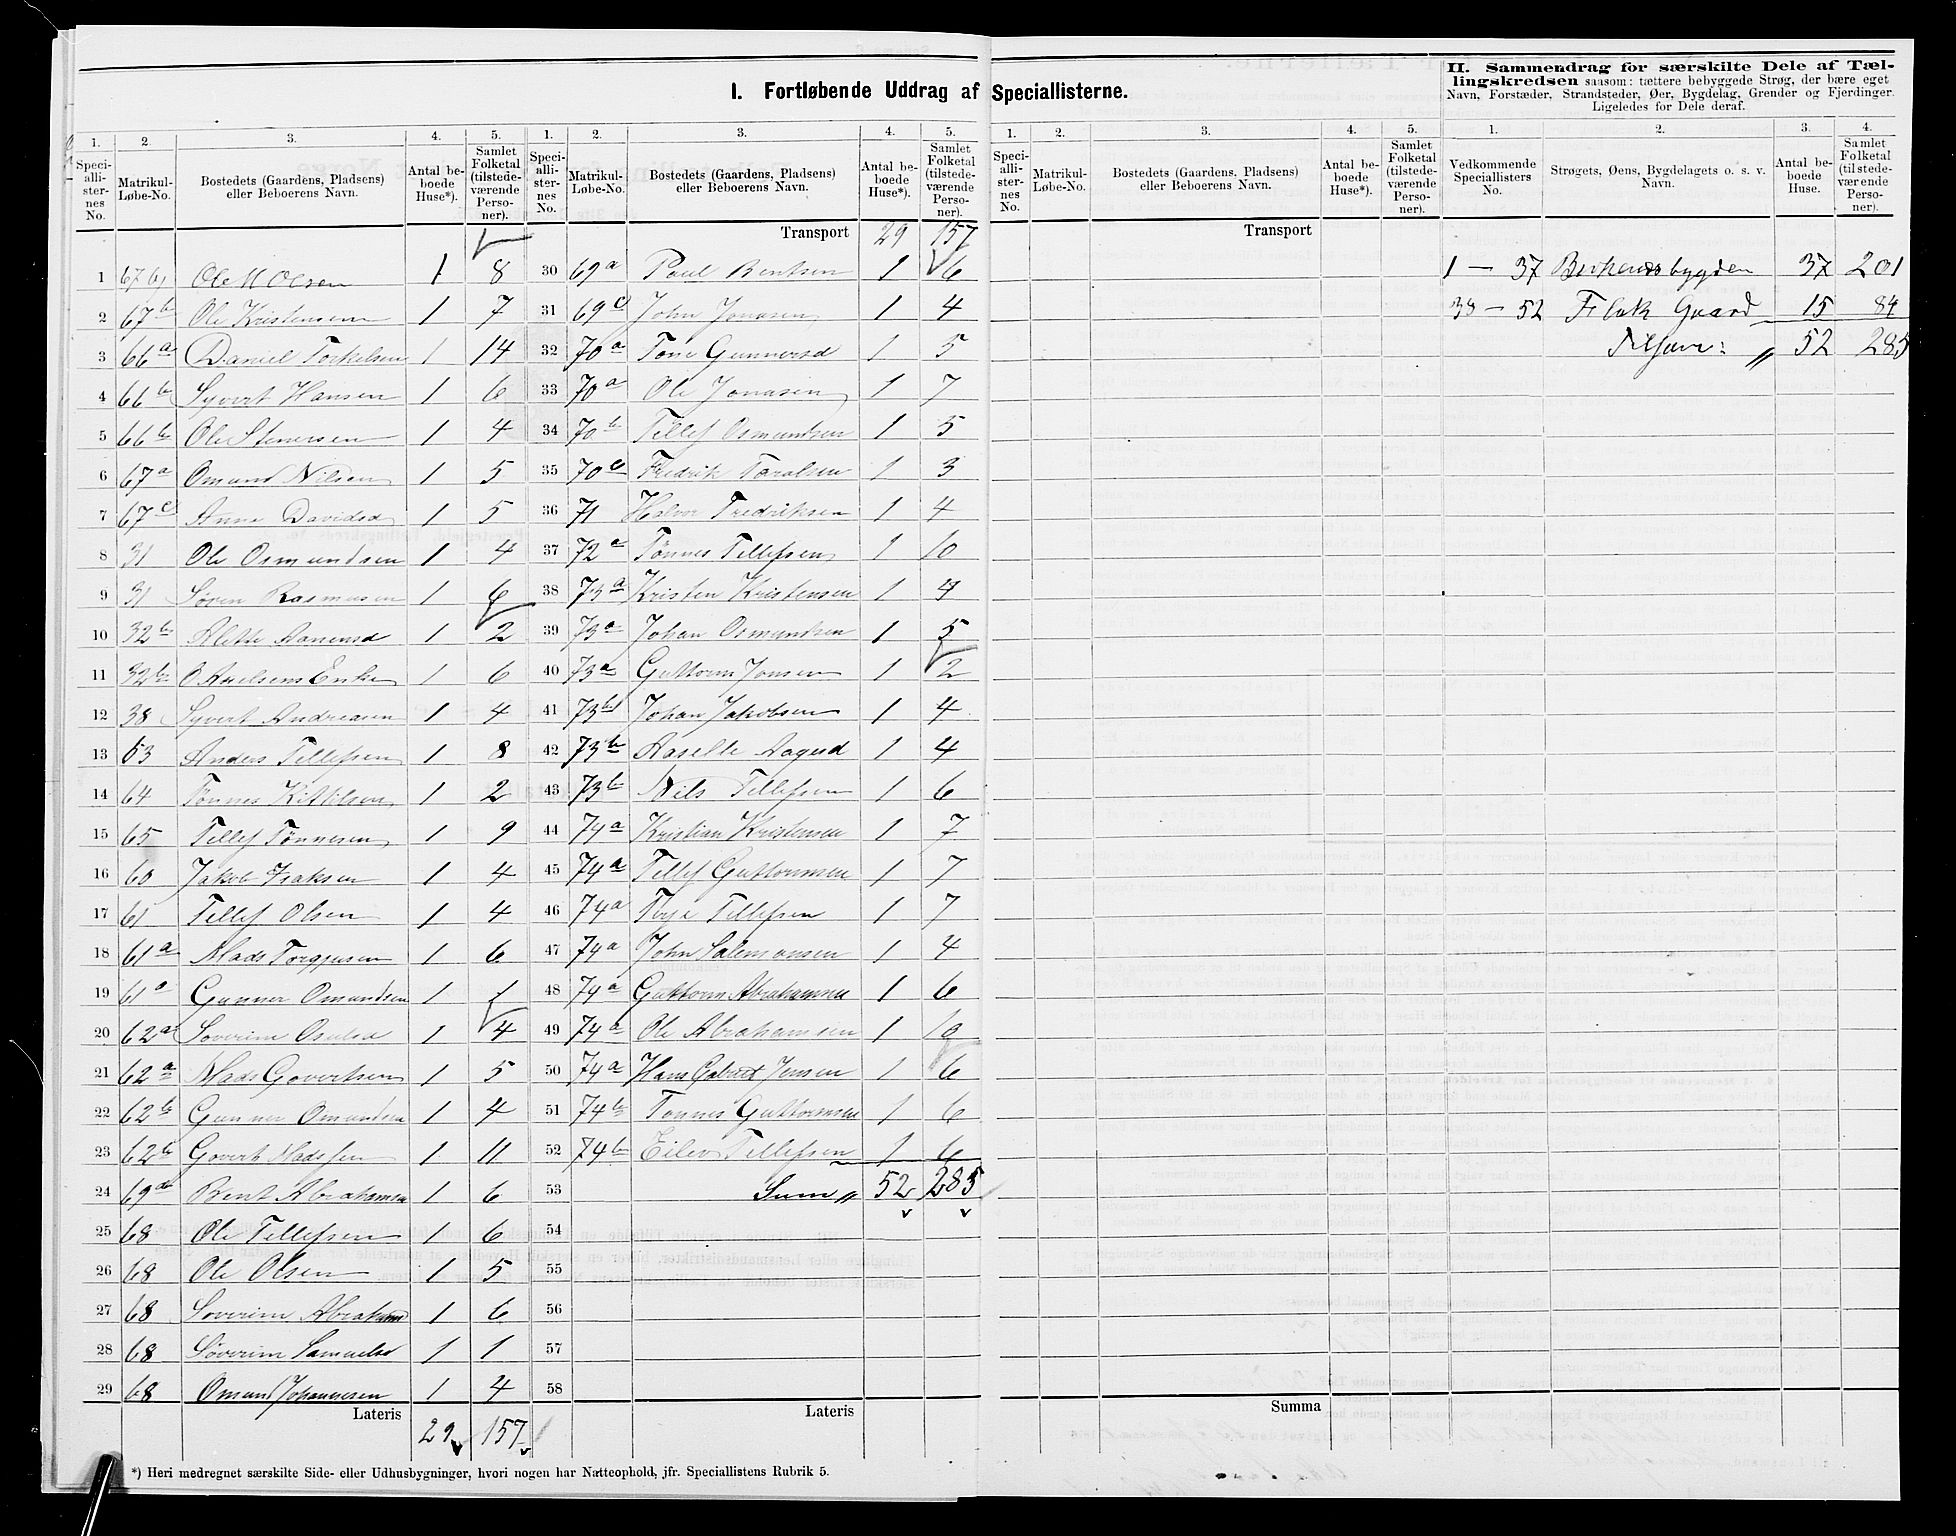 I. Fortløbende Uddrag af Speciallisterne.
II. Sammendrag for særskilte Dele af Tællingskredsen saasom: tættere bebyggede Strøg, der bære eget
Navn, Forstæder, Strandsteder, Øer, Bygdelag, Grender og Fjerdinger.
Ligeledes for Dele deraf.
1. 2. 3. 4. 5.
Speciallisternes No. Matrikul-Løbe-No. Bostedets (Gaardens, Pladsens) eller Beboerens Navn. Antal beboede Huse*). Samlet Folketal (tilstedeværende Personer).
1 Ole M Olsen 1 8
2 67b Ole Kristensen 1 7
3 66a Daniel Torkelsen 1 14
4 66b Syvert Hansen 1 6
5 66b Ole Stenersen 1 4
6 67a Omund Nilsen 1 5
7 67c Anne Davidsd 1 5
8 31 Ole Osmundsen 1 4
9 31 Søren Rasmusen 1 6
10 32b Alette Aanensd 1 2
11 32b Enke 1 6
12 38 Syvert Andreasen 1 4
13 63 Anders Tellefsen 1 8
14 64 Tønnes Kittilsen 1 2
15 65 Tellef Tønnesen 1 9
16 60 Jakob Isaksen 1 4
17 61 Tellef Olsen 1 4
18 61a Mads Torgjusen 1 6
19 61a Gunner Omundsen 1 1
20 62a Soverine 1 4
21 62a Mads Govertsen 1 5
22 62b Gunner Omundsen 1 4
23 62b Govert Madssen 1 11
24 69 Bent Abrahamsen 1 6
25 68 Ole Tellefsen 1 6
26 68 Ole Olsen 1 5
27 68 Soverine 1 6
28 68 Søverine Samuelsd 1 1
29 68 Omund Johannesen 1 4
Lateris 29 157
1. 2. 3. 4. 5.
Speciallisternes No. Matrikul-Løbe-No. Bostedets (Gaardens, Pladsens) eller Beboerens Navn. Antal beboede Huse*). Samlet Folketal (tilstedeværende Personer).
Transport 29 157
30 69a Paul Bentsen 1 6
31 69c John Jonasen 1 4
32 70a Tone Gunnersd 1 5
33 70a Ole Jonasen 1 7
34 70b Tellef Osmundsen 1 5
35 70c Fredrik Taralsen 1 3
36 71 Halvor Fredriksen 1 4
37 72a Tønnes Tellefsen 1 10
38 73a Kristen Kristensen 1 4
39 73a Johan Osmundsen 1 5
40 73a Guttorm Jonsen 1 2
41 73b Johan Jakobsen 1 4
42 73b Aaselle Aagesd 1 4
43 73b Nils Tellefsen 1 6
44 74a Kristian Kristensen 1 7
45 74a Tellef Guttormsen 1 7
46 74a Terje Tellefsen 1 7
47 74a John Salemonsen 1 4
48 74a Guttorm Abrahamsen 1 6
49 74a Ole Abrahamsen 1 10
50 74a Hans Gabriel Jensen 1 6
51 74b Tønnes Guttormsen 1 6
52 74b Eilev Tellefsen 1 6
53 Sum „ 52 285
54
55
56
57
58
Lateris
*) Heri medregnet særskilte Side- eller Udhusbygninger, hvori nogen har Natteophold, jfr. Speciallistens Rubrik 5.
1. 2. 3. 4. 5.
Speciallisternes No. Matrikul-Løbe-No. Bostedets (Gaardens, Pladsens) eller Beboerens Navn. Antal beboede Huse*). Samlet Folketal (tilstedeværende Personer).
Transport
Summa
1. 2. 3. 4.
Vedkommende Speciallisters No. Strøgets, Øens, Bygdelagets o. s. v. Navn. Antal beboede Huse. Samlet Folketal (tilstedeværende Personer).
1 — 37 Birkenesbygden 37 201
38 — 52 Flak Gaard 15 84
Tilsam: „ 52 285